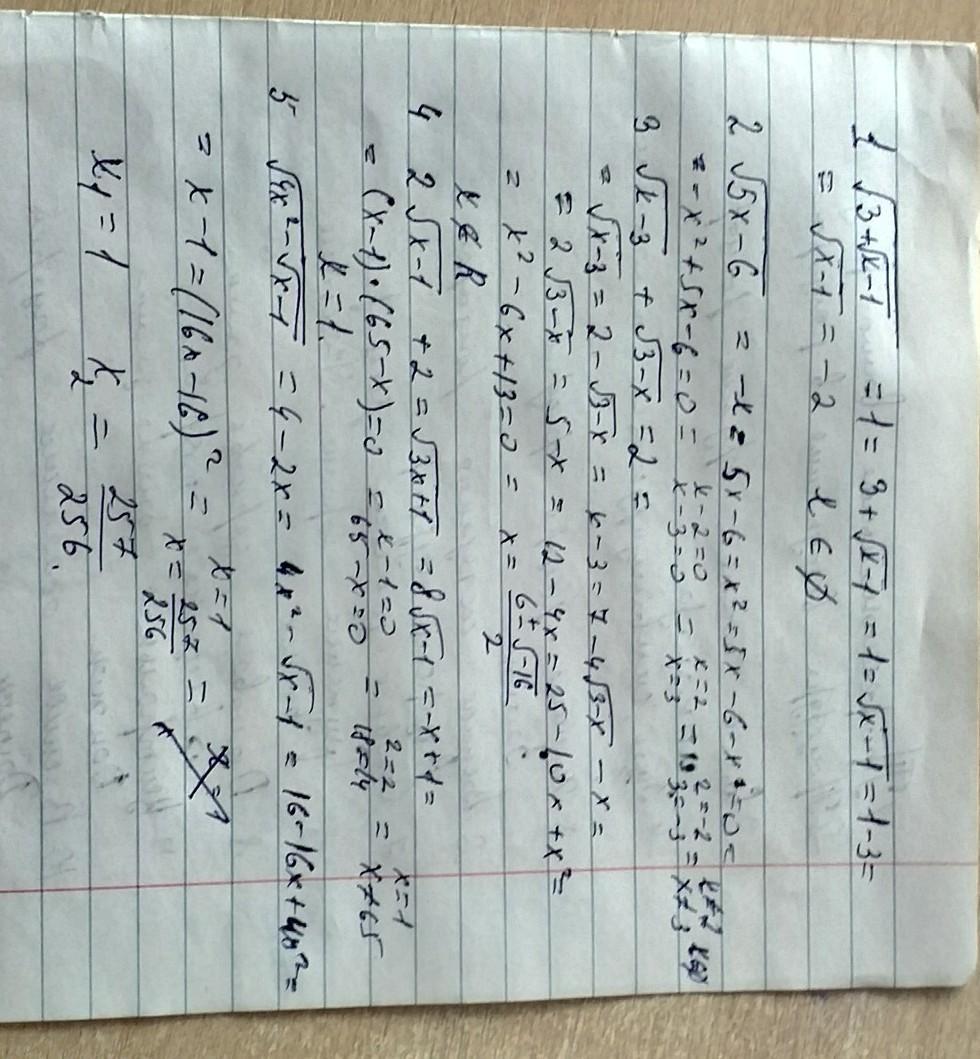 1 √(3+√(x-1)) = 1 = 3+√(x-1) = 1 = √(x-1) = 1-3 =
= √(x-1) = -2 x ∈ ∅
2 √(5x-6) = -x = 5x-6=x² = 5x-6-x²=0 =
= -x²+5x-6=0 = x-2=0 x=2 = 2=-2 = x≠2
x-3=0 = x=3 3=-3 x≠3
3 √(x-3) + √(3-x) = 2 =
= √(x-3) = 2-√(3-x) = x-3 = 7-4√(3-x) - x =
= 2√(3-x) = 5-x = 12-4x = 25-10x+x² =
= x²-6x+13=0 = x = (6±√-16)/2
x ∉ R
4 2√(x-1) + 2 = √(3x+1) = 8√(x-1) = -x+1 =
= (x-1)·(65-x)=0 = x-1=0 2=2 x=1
65-x=0 = 18=14 = x≠65
x=1.
5 √(4x²-√(x-1)) = 4-2x = 4x²-√(x-1) = 16-16x+4x² =
= x-1=(16x-16)² = x=1
x=257/256 =
x₁=1 x₂ = 257/256.